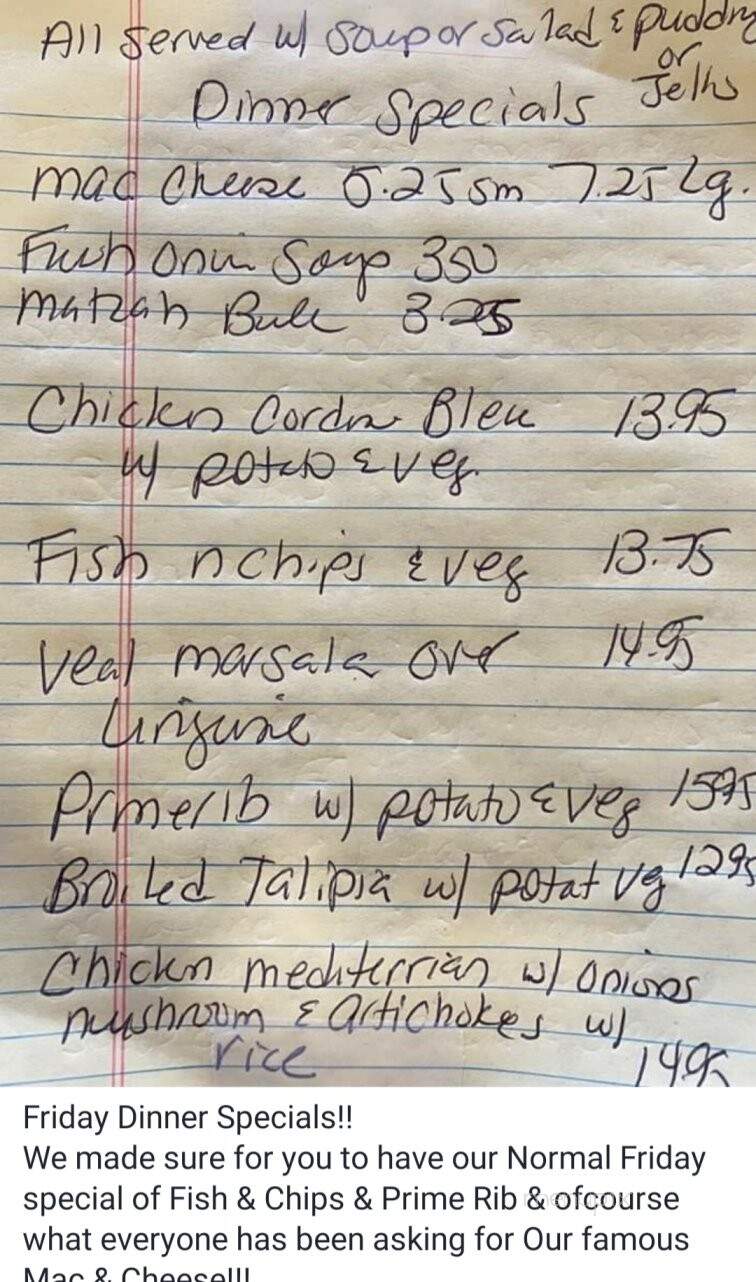 All Served w/ Soup or Salad & pudding
or
Jello
Dinner Specials
Mac Cheese 5.25 sm 7.25 Lg.
Onin Soup 350
Matzah Ball 3.25
Chicken Cordn Bleu 13.95
w/ potato & veg.
Fish n chips & veg 13.75
Veal marsala over 14.95
Linguine
Primerib w/ potato & veg 1595
Broiled Talipia w/ potat vg 1295
Chickn mediterrian w/ onions
mushroom & artichokes w/
rice
1495
Friday Dinner Specials!!
We made sure for you to have our Normal Friday
special of Fish & Chips & Prime Rib & ofcourse
what everyone has been asking for Our famous
Mac & Cheese!!!